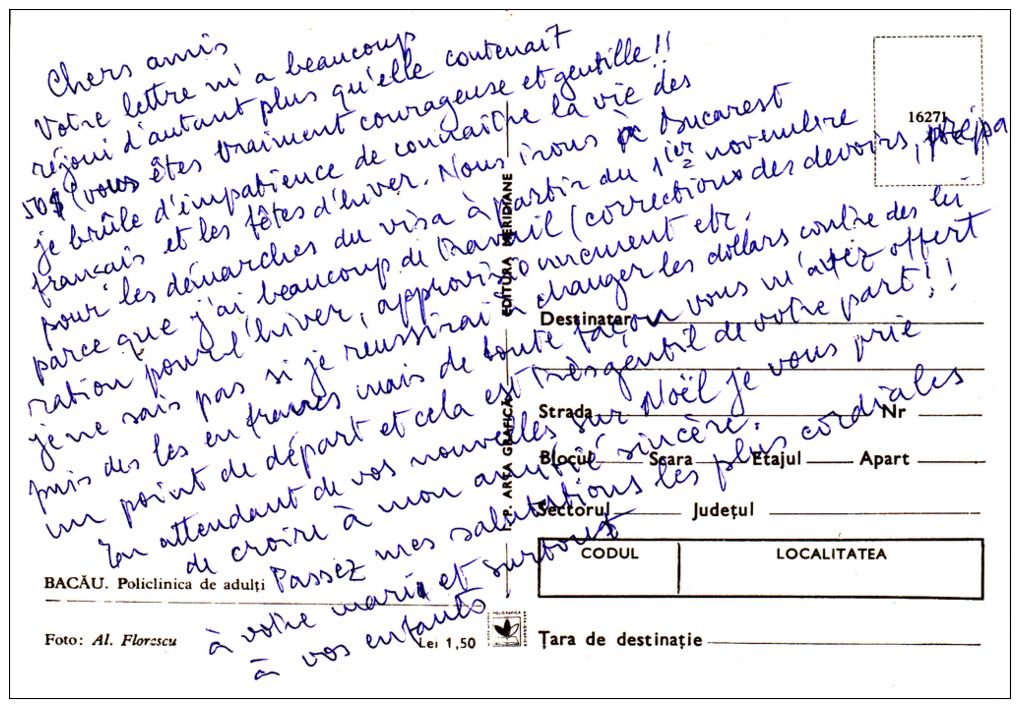 Chers amis
Votre lettre m'a beaucoup
réjoui d'autant plus qu'elle contenait
50$ (vous êtes vraiment courageuse et gentille!!
je brûle d'impatience de connaître la vie des
français et les fêtes d'hiver. Nous irons à Bucarest
pour les démarches du visa à partir du 1ier novembre
parce que j'ai beaucoup de travail (corrections des devoirs, prépa
ration pour l'hiver, approvisionnement etc.
je ne sais pas si je reussirai à changer les dollars contre des lei
puis des lei en francs mais de toute façon vous m'avez offert
un point de départ et cela est très gentil de votre part!!
En attendant de vos nouvelles sur Noël je vous prie
de croire à mon amitié sincère.
Passez mes salutations les plus cordiales
à votre mari et surtout
à vos enfants
16271
EDITURA MERIDIANE
I. P. ARTA GRAFICĂ
Destinatar
Strada Nr
Blocul Scara Etajul Apart
Sectorul Județul
CODUL LOCALITATEA
Țara de destinație
BACĂU. Policlinica de adulți
Foto: Al. Florescu
Lei 1,50